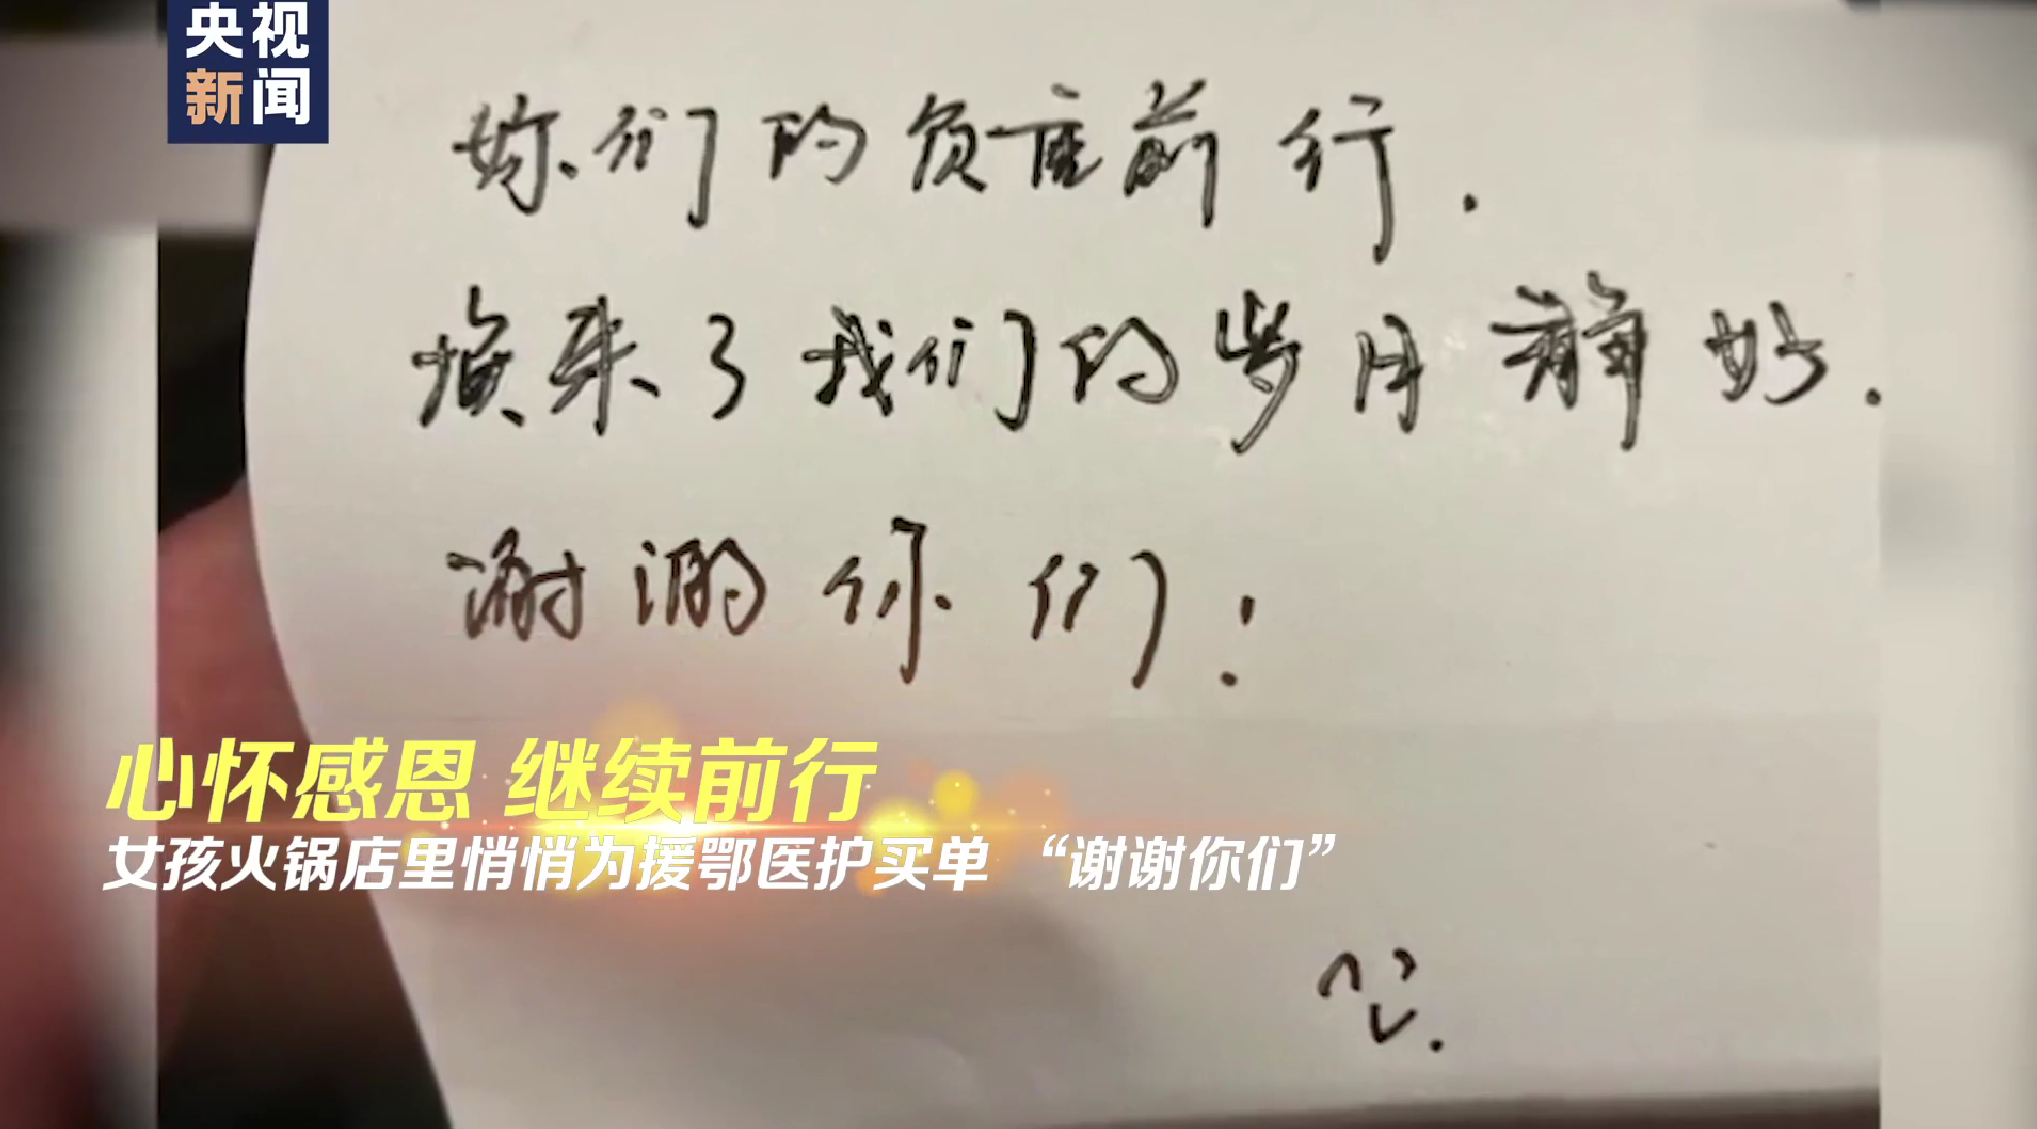 央视
新闻
妳们的负重前行.
换来了我们的岁月静好.
谢谢你们!
心怀感恩 继续前行
女孩火锅店里悄悄为援鄂医护买单 “谢谢你们”